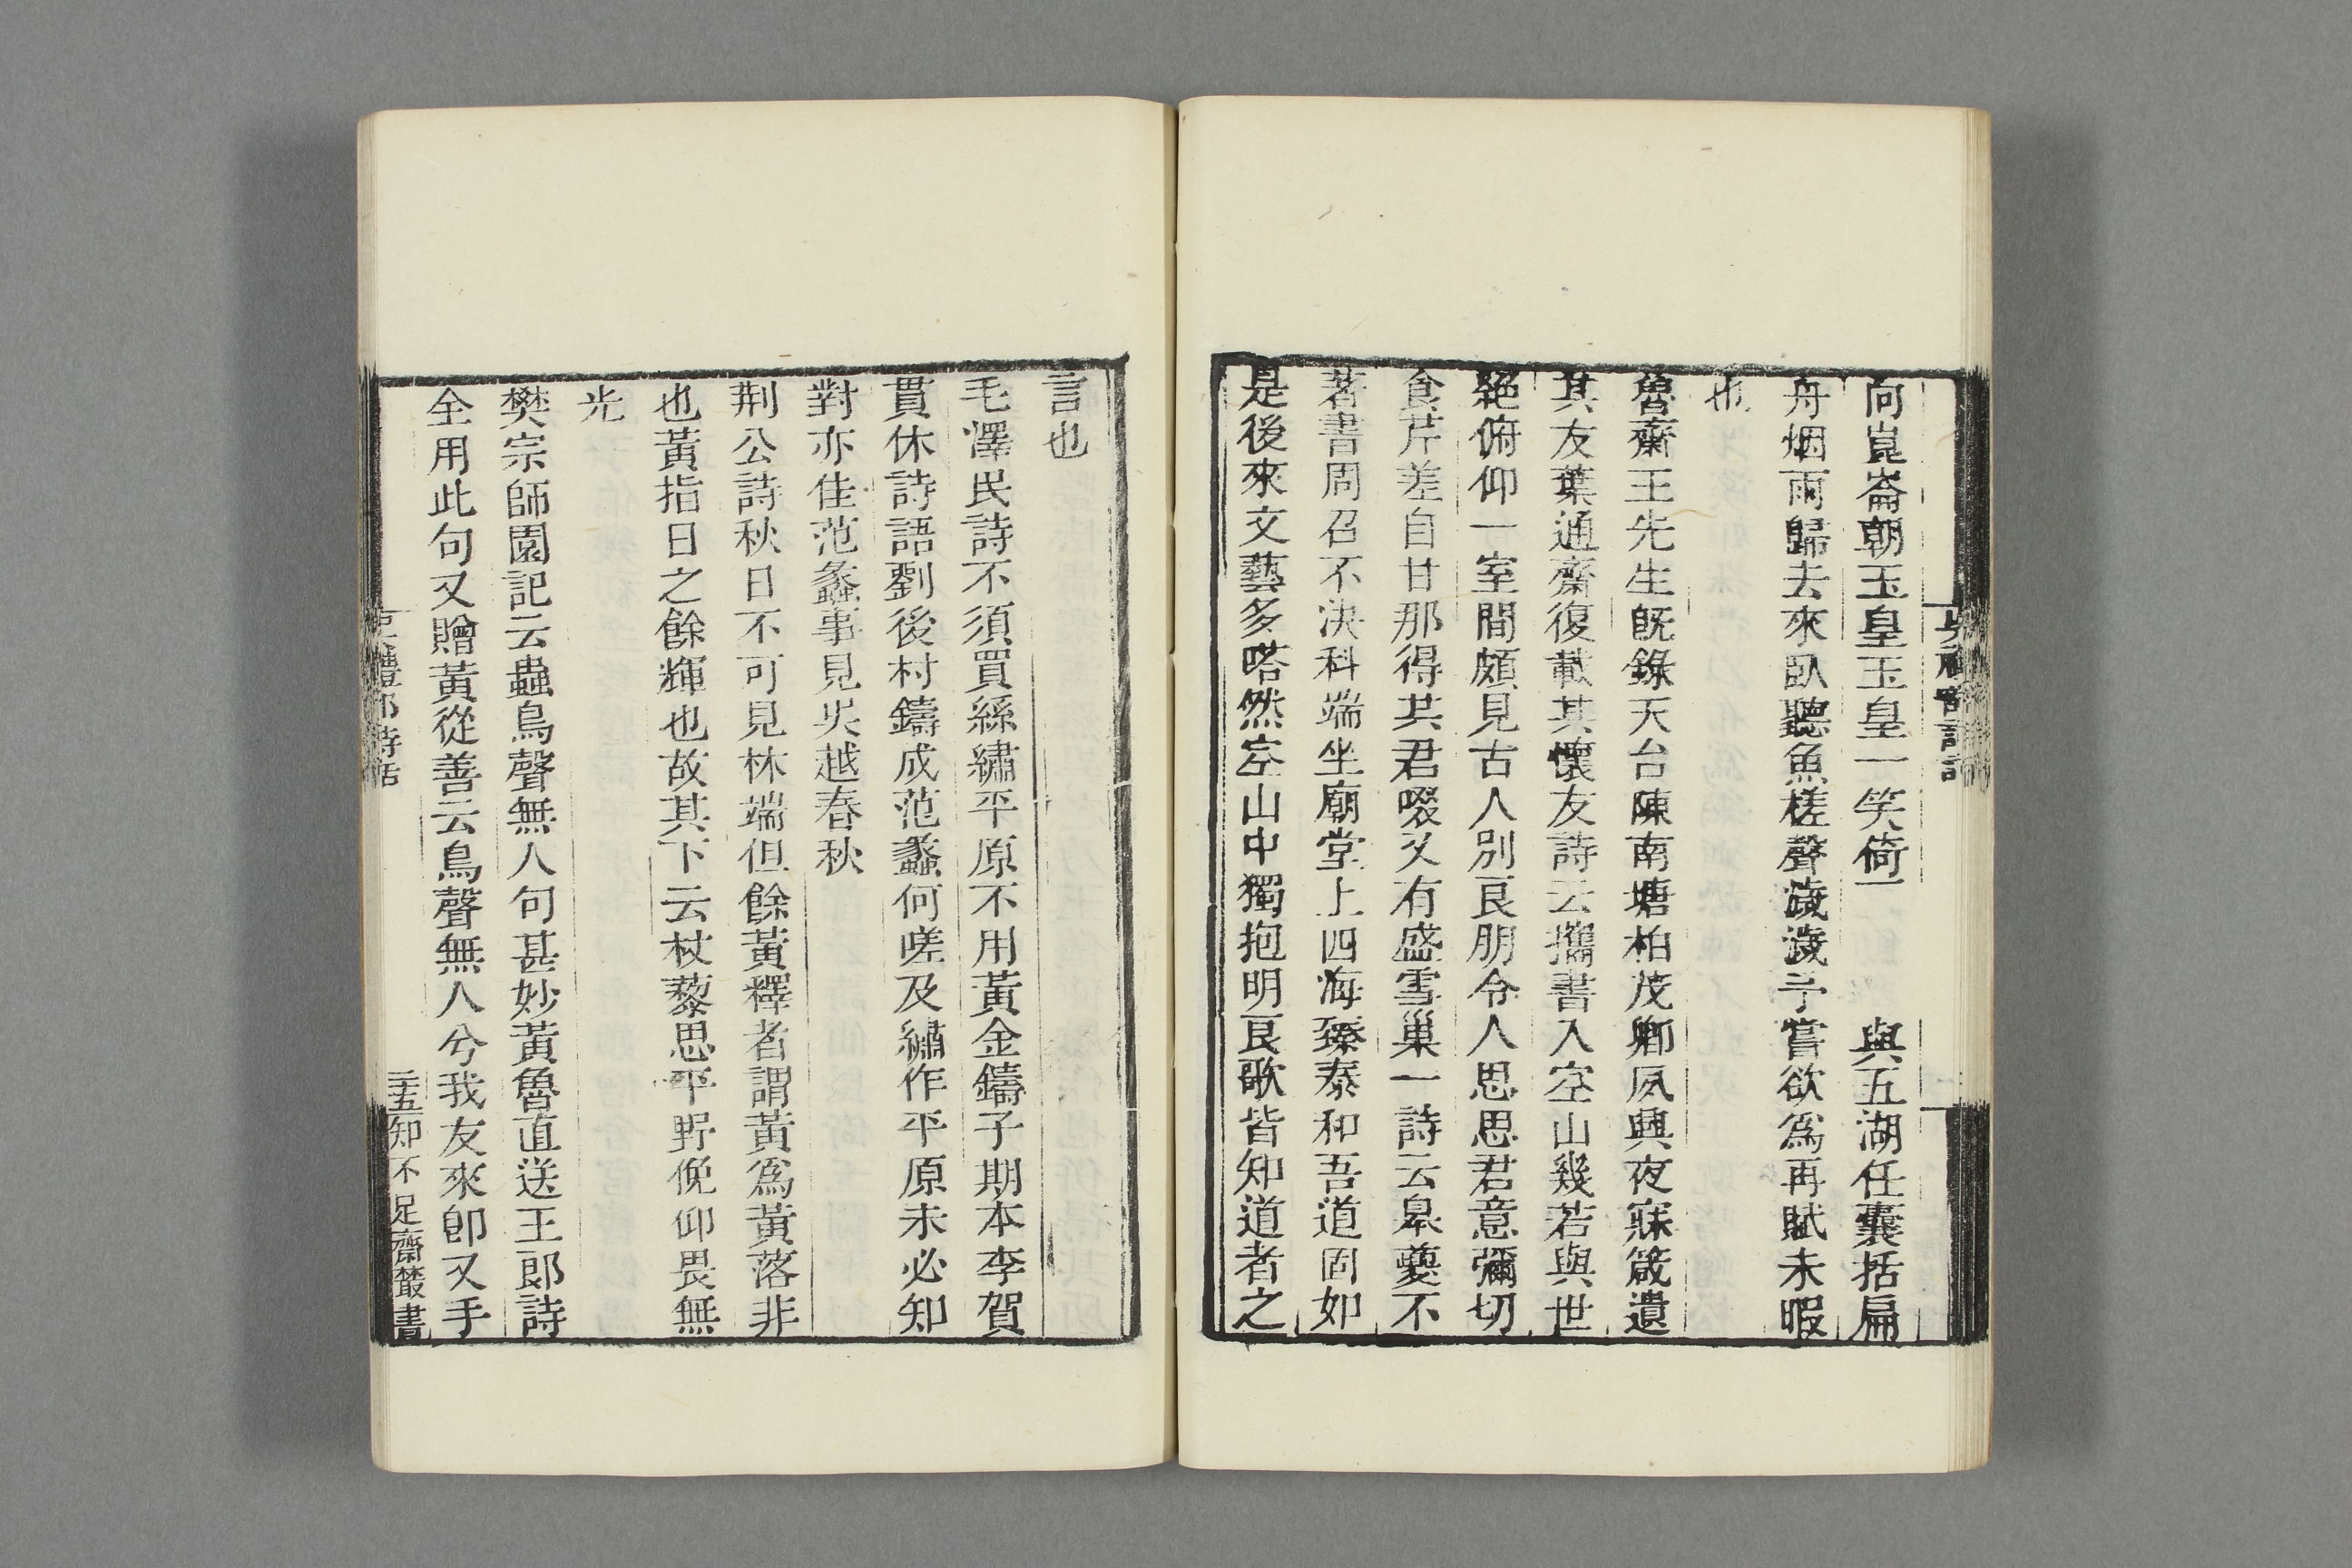 向崑崙朝玉皇玉皇一笑倚 與五湖任囊括扁
舟烟雨歸去來臥聽魚槎聲濊濊予嘗欲爲再賦未暇
也
魯齋王先生旣錄天台陳南塘柏茂卿夙興夜寐箴遺
其友葉通齋復載其懷友詩云攜書入空山幾若與世
絕俯仰一室間頗見古人別良朋令人思思君意彌切
食芹差自甘那得共君啜又有盛雪巢一詩云臯夔不
著書周召不決科端坐廟堂上四海臻泰和吾道固如
是後來文藝多嗒然空山中獨抱明良歌皆知道者之
言也
毛澤民詩不須買絲繡平原不用黃金鑄子期本李賀
貫休詩語劉後村鑄成范蠡何嗟及繡作平原未必知
對亦佳范蠡事見吳越春秋
荆公詩秋日不可見林端但餘黃釋者謂黃爲黃落非
也黃指日之餘輝也故其下云杖藜思平野俛仰畏無
光
樊宗師園記云蟲鳥聲無人句甚妙黃魯直送王郞詩
全用此句又贈黃從善云鳥聲無人兮我友來卽又手
吳禮部詩話 三十五 知不足齋叢書